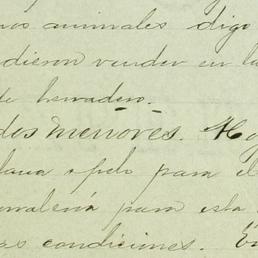 nos animales digo
dieron vender en la
de herradero.
dos menores. Ho
lana i pelo para el
para esta
as condiciones. En